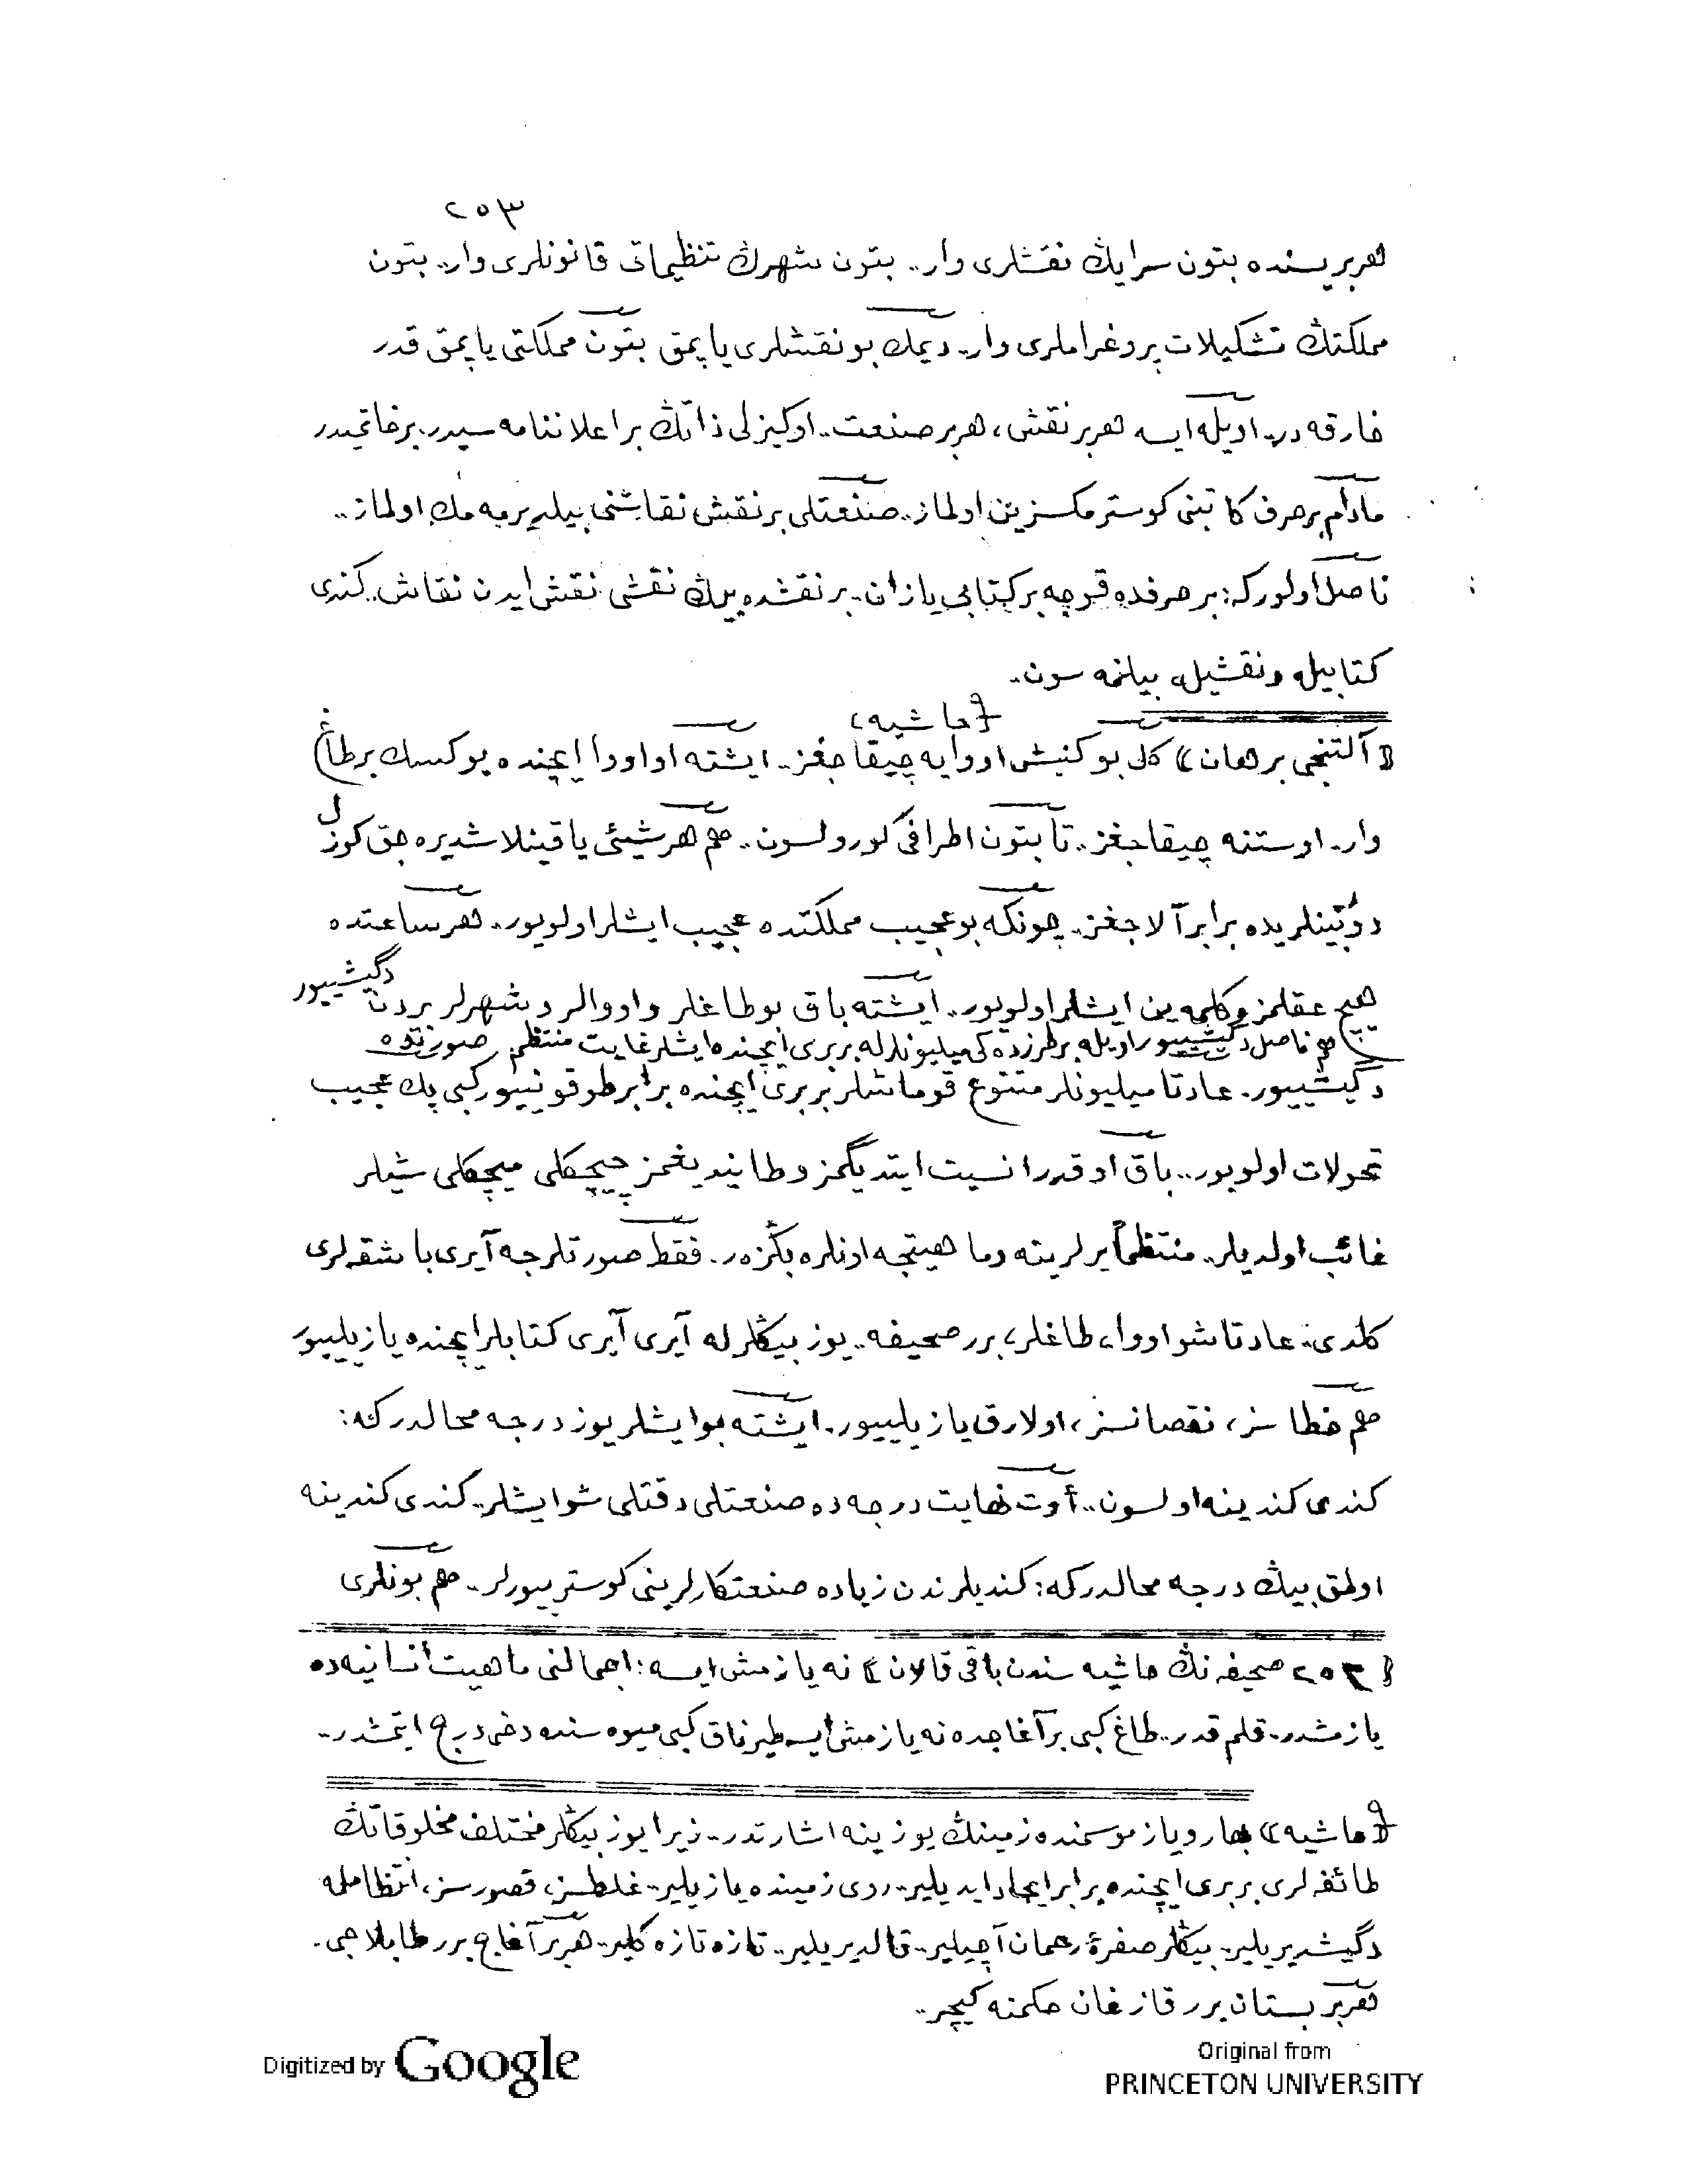 ٢٥٣
هربريسنده بتون سرايڭ نقشلرى وار.. بتون شهرڭ تنظيماتى قانونلرى وار.. بتون
مملكتڭ تشكيلات پروغراملرى وار.. ديمك بو نقشلرى ياپمق بتون مملكتى ياپمق قدر
خارقه در.. اويله ايسه هربر نقش، هربر صنعت.. او كيزلى ذاتڭ بر اعلاننامه سيدر. بر خاتميدر
مادام بر حرف كاتبنى كوسترمكسزين اولماز.. صنعتلى بر نقش نقاشنى بيلديرمه مك اولماز..
ناصل اولور كه: بر حرفده قوجه بر كتابى يازان.. بر نقشده بيڭ نقشى نقش ايدن نقاش.. كندى
كتابيله و نقشيله بيلنمه سون..
(حاشيه)
﴿آلتنجى برهان﴾ كل بو كنيش اووايه چيقاجغز.. ايشته او اووا ايچنده يوكسك بر طاغ
وار.. اوستنه چيقاجغز.. تا بتون اطرافى كورولسون.. هم هر شيئى ياقينلاشديره جق كوزل
دوربينلريده برابر آلاجغز.. چونكه بو عجيب مملكتده عجيب ايشلر اولويور.. هر ساعتده
هيچ عقلمزه كلمه ين ايشلر اولويور.. ايشته باق بو طاغلر و اووالر و شهرلر بردن دگيشييور
هم ناصل دگيشييور اويله بر طرزده كى ميليونلرله بربرى ايچنده ايشلر غايت منتظم صورتده
دگيشييور. عادتا ميليونلر متنوع قوماشلر بربرى ايچنده برابر طوقونييور كبى پك عجيب
تحولات اولويور.. باق او قدر انسيت ايتديگمز و طانيديغمز چيچكلى ميچكلى شيلر
غائب اولديلر.. منتظماً يرلرينه و ماهيتجه اونلره بڭزر. فقط صورتلرجه آيرى باشقه لرى
كلدى.. عادتا شو اووا، طاغلر، برر صحيفه.. يوز بيڭلرله آيرى آيرى كتابلر ايچنده يازيلييور
هم خطاسز، نقصانسز، اولارق يازيلييور. ايشته بو ايشلر يوز درجه محالدر كه:
كندى كندينه اولسون.. أوت نهايت درجه ده صنعتلى دقتلى شو ايشلر.. كندى كندينه
اولمق بيڭ درجه محالدر كه: كنديلرندن زياده صنعتكارلرينى كوسترييورلر.. هم بونلرى
﴿٢٥٢ صحيفه نڭ حاشيه سندن باقى قالان﴾ نه يازمش ايسه: اجمالنى ماهيت أنسانيه ده
يازمشدر.. قلم قدر.. طاغ كبى بر آغاجده نه يازمش ايسه طيرناق كبى ميوه سنده دخى درج ايتمشدر..
(حاشيه) بهار و ياز موسمنده زمينڭ يوزينه اشارتدر.. زيرا يوز بيڭلر مختلف مخلوقاتڭ
طائفه لرى بربرى ايچنده برابر ايجاد ايديلير.. روى زمينده يازيلير.. غلطسز، قصورسز، انتظامله
دگيشديريلير.. بيڭلر صفرۀ رحمان آچيلير.. قالديريلير.. تازه تازه كلير.. هربر آغاج برر طابلاجى.
هربر بستان برر قازغان حكمنه كيچر..
Digitized by Google
Original from
PRINCETON UNIVERSITY